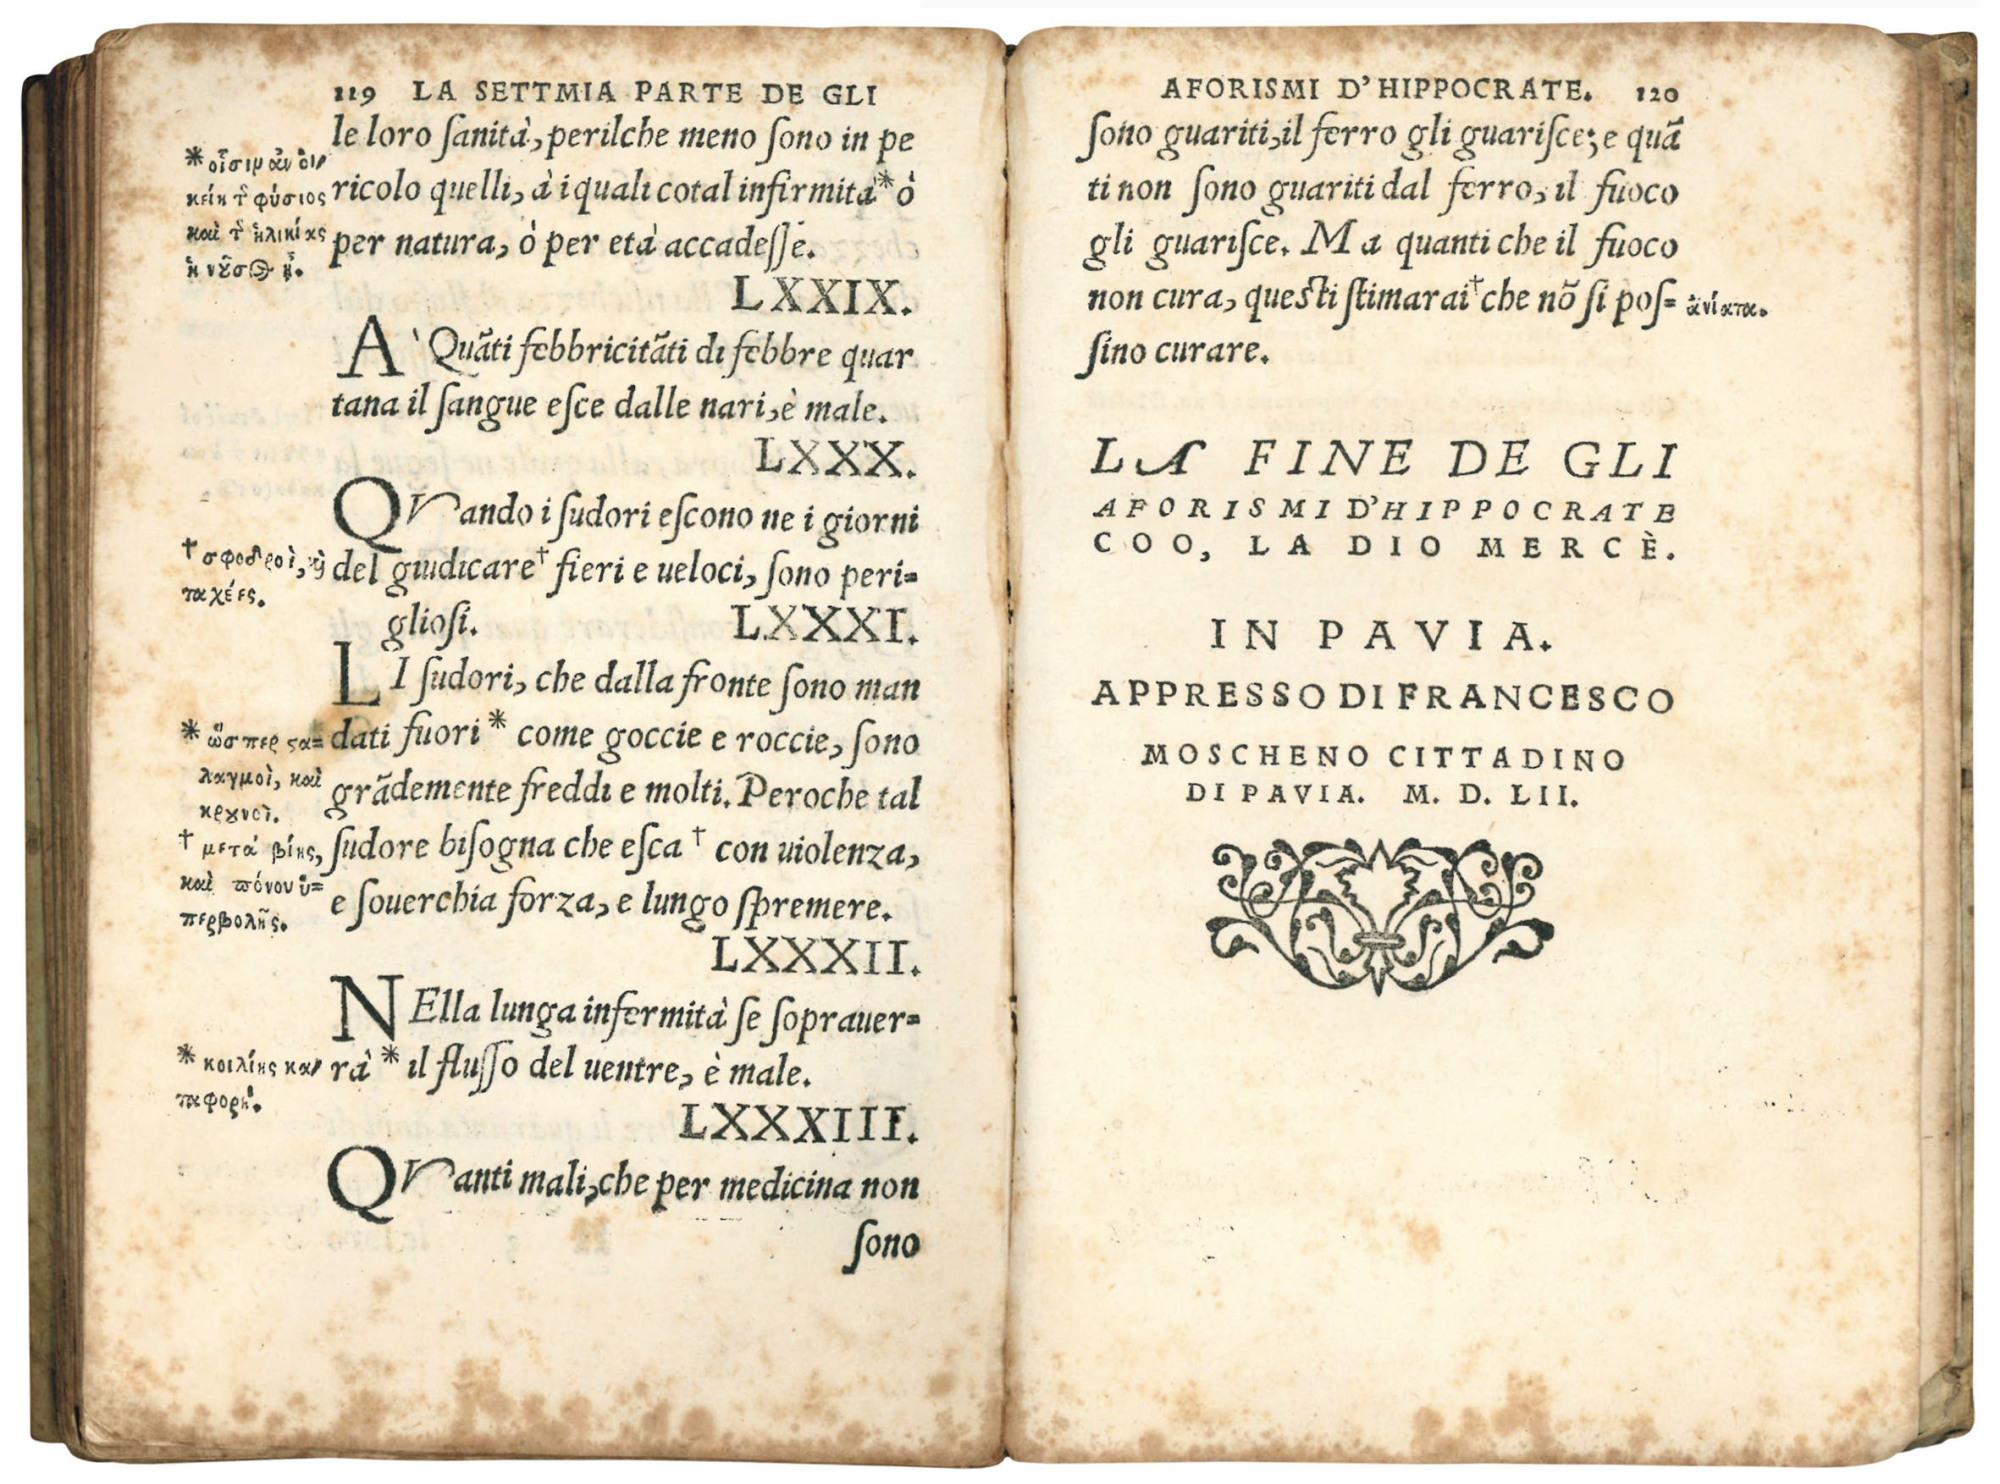 119 LA SETTMIA PARTE DE GLI
le loro ſanità, perilche meno ſono in pe
ricolo quelli, à i quali cotal infirmità * ò
per natura, ò per età accadeſſe.
* οἷσιμ ἂν οἰ
κείη τ͂ φύσιος
καὶ τ͂ ἡλικίας
ἡ νῦσος ᾖ.
LXXIX.
A' Quãti febbricitãti di febbre quar
tana il ſangue eſce dalle nari, è male.
LXXX.
QVando i ſudori eſcono ne i giorni
del giudicare † fieri e ueloci, ſono peri=
glioſi.
† σφοδροὶ, ϗ̀
ταχέες.
LXXXI.
LI ſudori, che dalla fronte ſono man
dati fuori * come goccie e roccie, ſono
grãdemente freddi e molti. Peroche tal
ſudore biſogna che eſca † con uiolenza,
e ſouerchia forza, e lungo ſpremere.
* ὥσπερ ςα=
λαγμοὶ, καὶ
κρȣνοὶ.
† μετὰ βίης,
καὶ πόνου ὑ=
περβολῆς.
LXXXII.
NElla lunga infermità ſe ſoprauer=
rà * il fluſſo del uentre, è male.
* κοιλίης κα
ταφορὴ.
LXXXIII.
QVanti mali, che per medicina non
ſono
AFORISMI D'HIPPOCRATE. 120
ſono guariti, il ferro gli guariſce; e quã
ti non ſono guariti dal ferro, il fuoco
gli guariſce. Ma quanti che il fuoco
non cura, queſti ſtimarai † che nõ ſi poſ= ἀνίατα.
ſino curare.
LA FINE DE GLI
AFORISMI D'HIPPOCRATE
COO, LA DIO MERCÈ.
IN PAVIA.
APPRESSO DI FRANCESCO
MOSCHENO CITTADINO
DI PAVIA. M. D. LII.